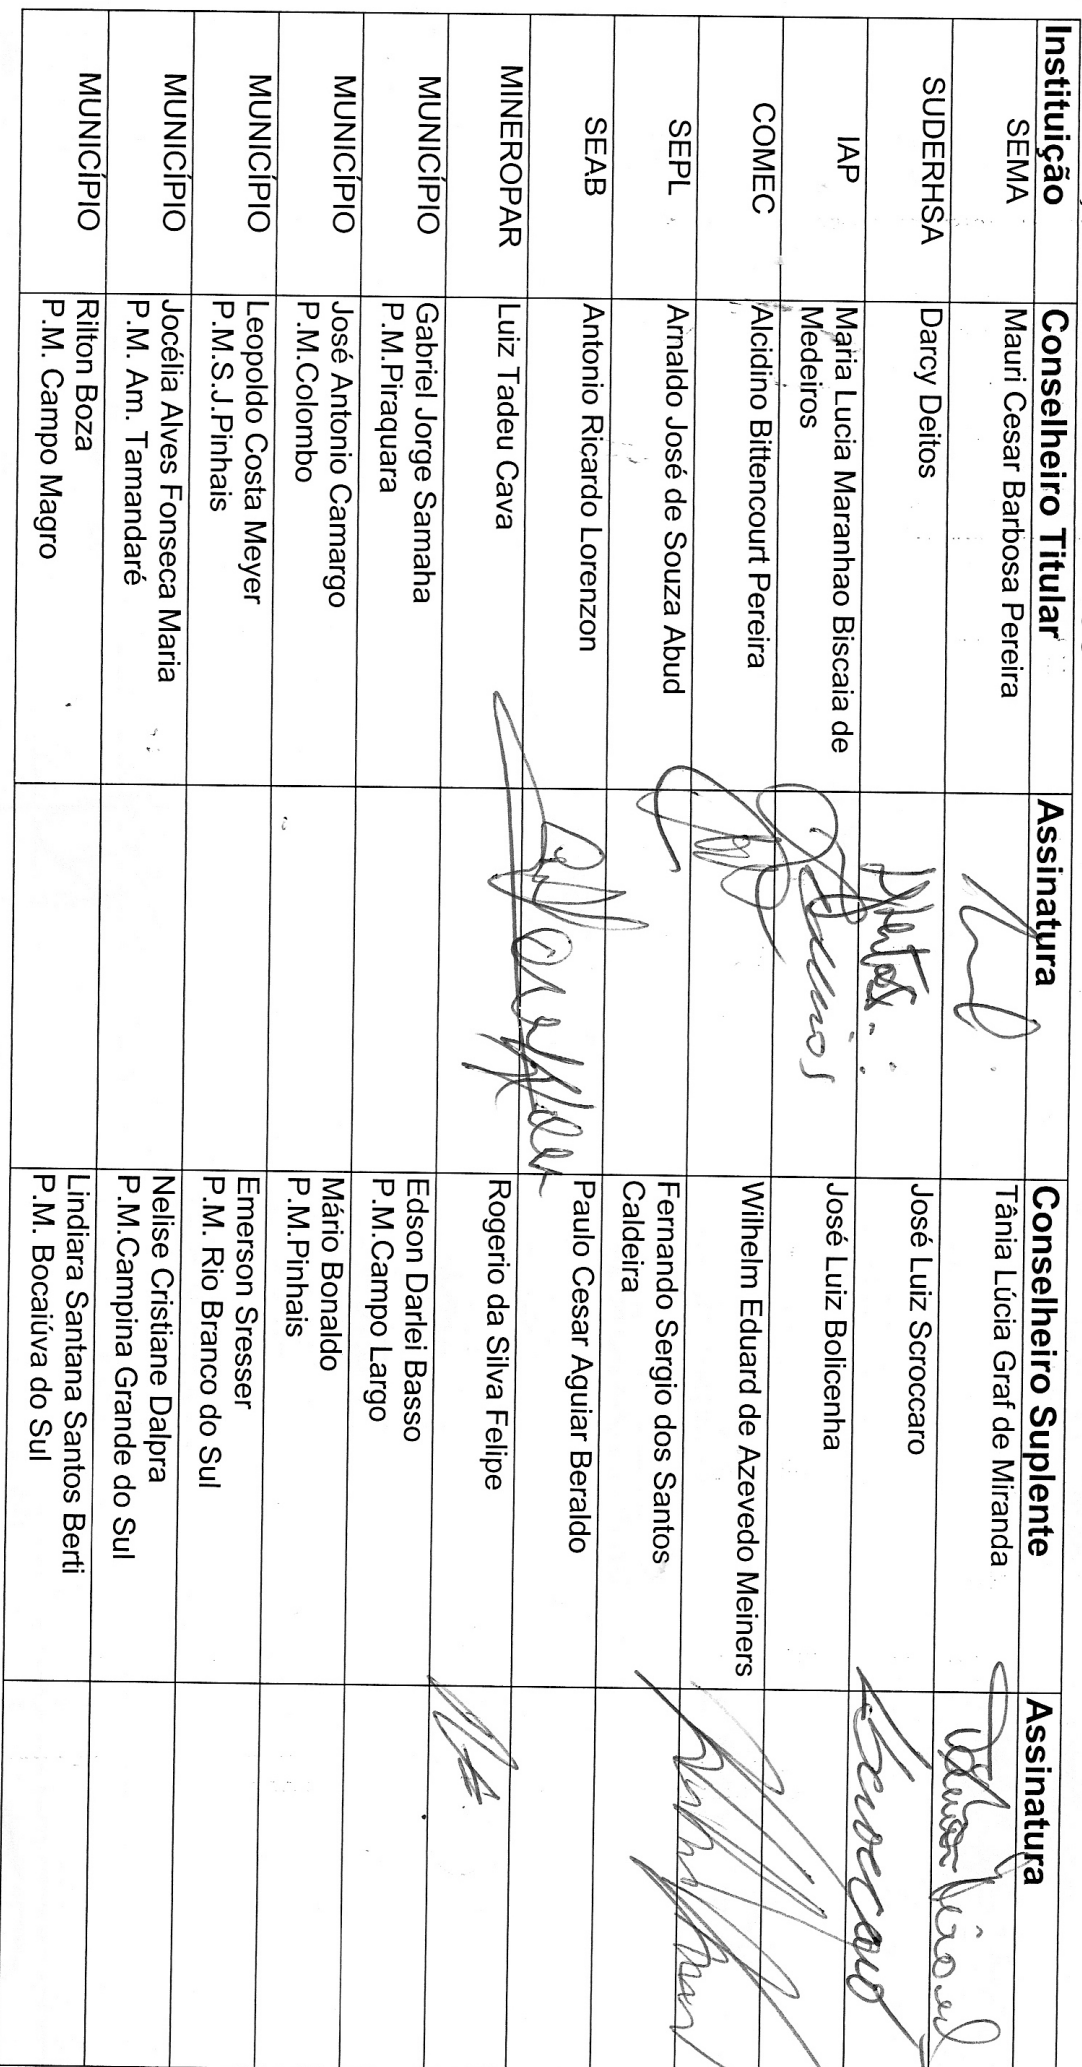 Instituição Conselheiro Titular Assinatura Conselheiro Suplente Assinatura
SEMA Mauri Cesar Barbosa Pereira Tânia Lúcia Graf de Miranda
SUDERHSA Darcy Deitos José Luiz Scroccaro
IAP Maria Lucia Maranhao Biscaia de José Luiz Bolicenha
Medeiros
COMEC Alcidino Bittencourt Pereira Wilhelm Eduard de Azevedo Meiners
SEPL Arnaldo José de Souza Abud Fernando Sergio dos Santos
Caldeira
SEAB Antonio Ricardo Lorenzon Paulo Cesar Aguiar Beraldo
MINEROPAR Luiz Tadeu Cava Rogerio da Silva Felipe
MUNICÍPIO Gabriel Jorge Samaha Edson Darlei Basso
P.M.Piraquara P.M.Campo Largo
MUNICÍPIO José Antonio Camargo Mário Bonaldo
P.M.Colombo P.M.Pinhais
MUNICÍPIO Leopoldo Costa Meyer Emerson Sresser
P.M.S.J.Pinhais P.M. Rio Branco do Sul
MUNICÍPIO Jocélia Alves Fonseca Maria Nelise Cristiane Dalpra
P.M. Am. Tamandaré P.M.Campina Grande do Sul
MUNICÍPIO Rilton Boza Lindiara Santana Santos Berti
P.M. Campo Magro P.M. Bocaiúva do Sul